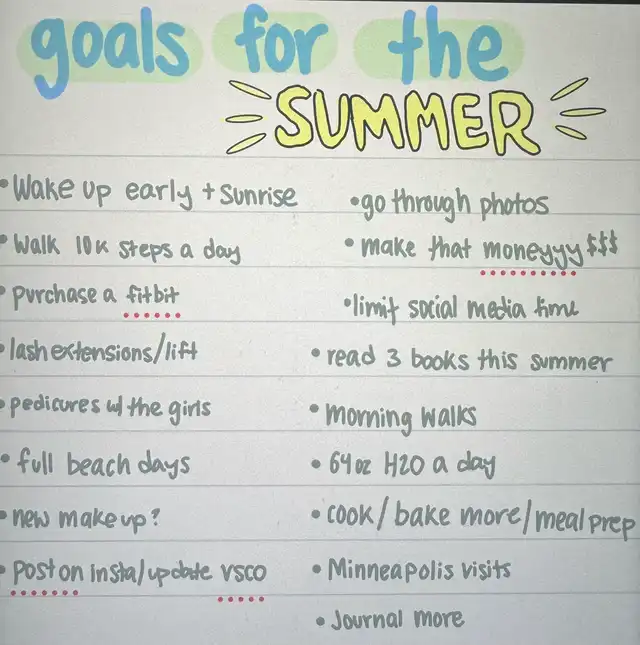 goals for the
SUMMER
• Wake up early + Sunrise
• Walk 10K steps a day
• purchase a fitbit
• lash extensions/lift
• pedicures w/ the girls
• full beach days
• new make up?
• post on insta/update vsco
• go through photos
• make that moneyyy $$$
• limit social media time
• read 3 books this summer
• morning walks
• 64 oz H2O a day
• cook/bake more/meal prep
• Minneapolis visits
• Journal more